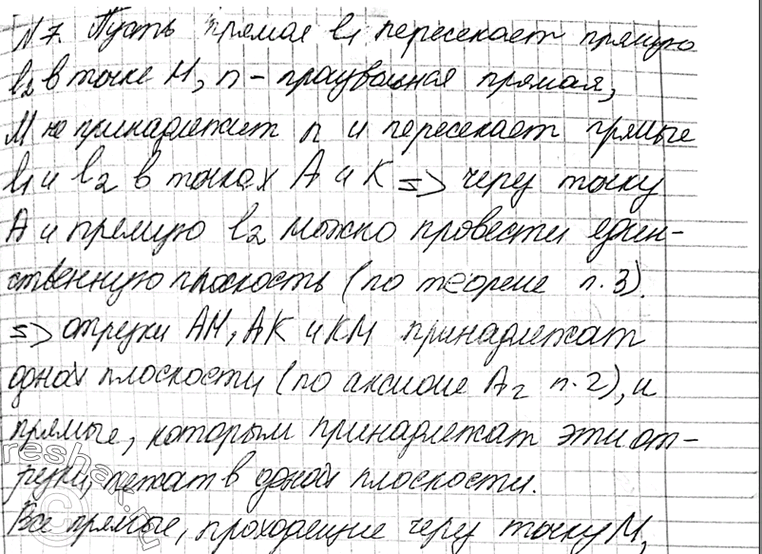 N7. Пусть прямая l1 пересекает прямую
l2 в точке М, n - произвольная прямая,
М не принадлежит n и пересекает прямые
l1 и l2 в точках А и К => через точку
А и прямую l2 можно провести един-
ственную плоскость (по теореме п. 3).
=> отрезки АМ, АК и КМ принадлежат
одной плоскости (по аксиоме А2 п. 2), и
прямые, которым принадлежат эти от-
резки, лежат в одной плоскости.
Все прямые, проходящие через точку М,
reshak.ru